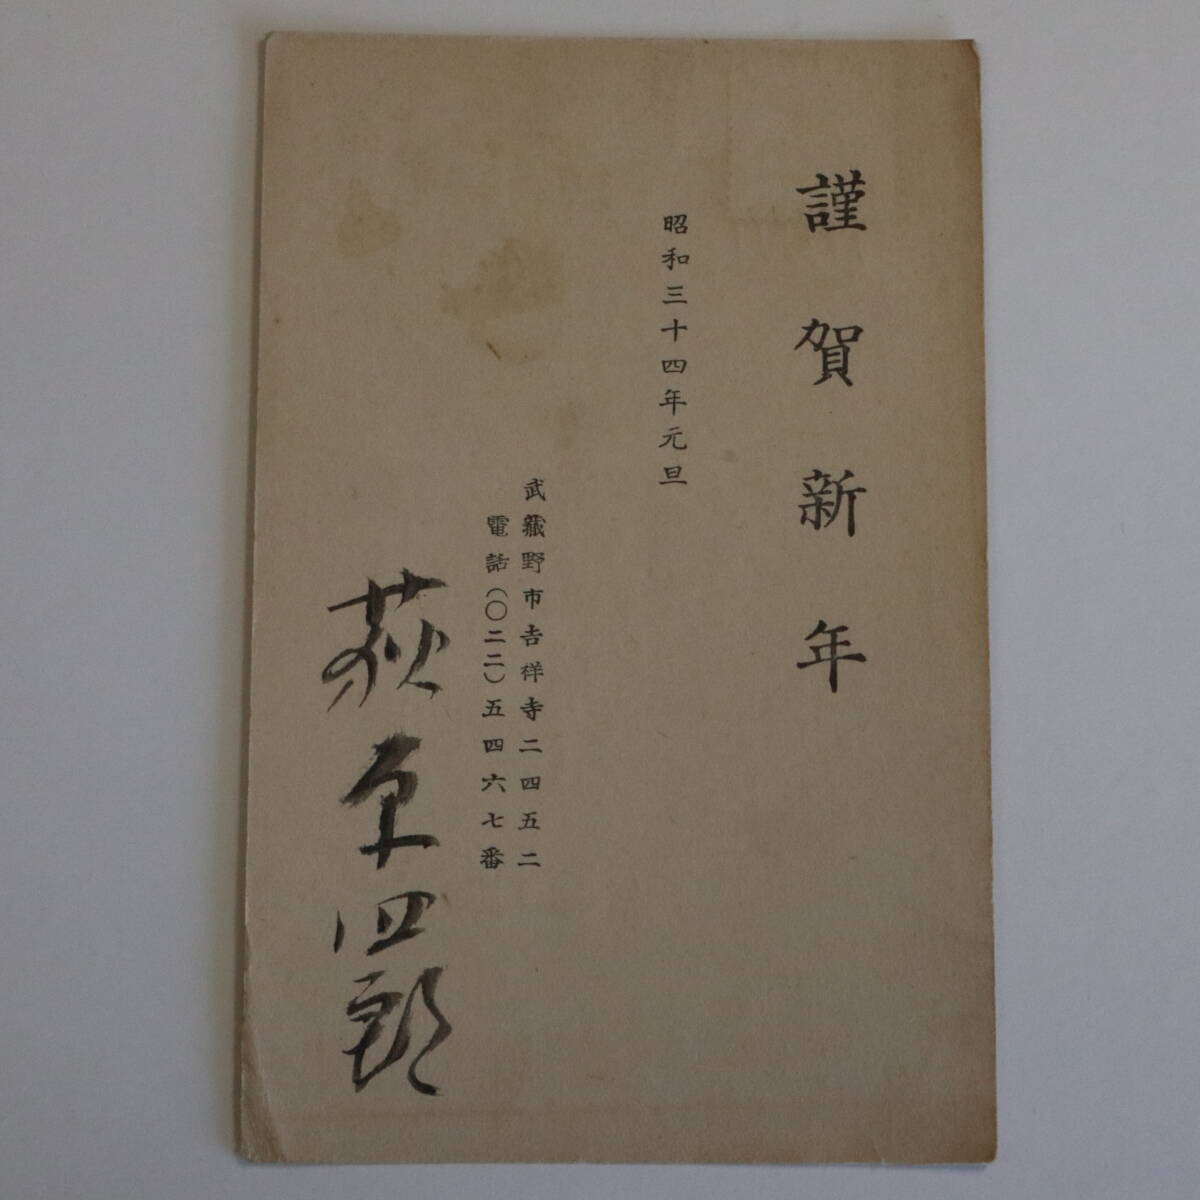 謹賀新年
昭和三十四年元旦
武蔵野市吉祥寺二四五二
電話(〇二二)五四六七番
荻原四郎